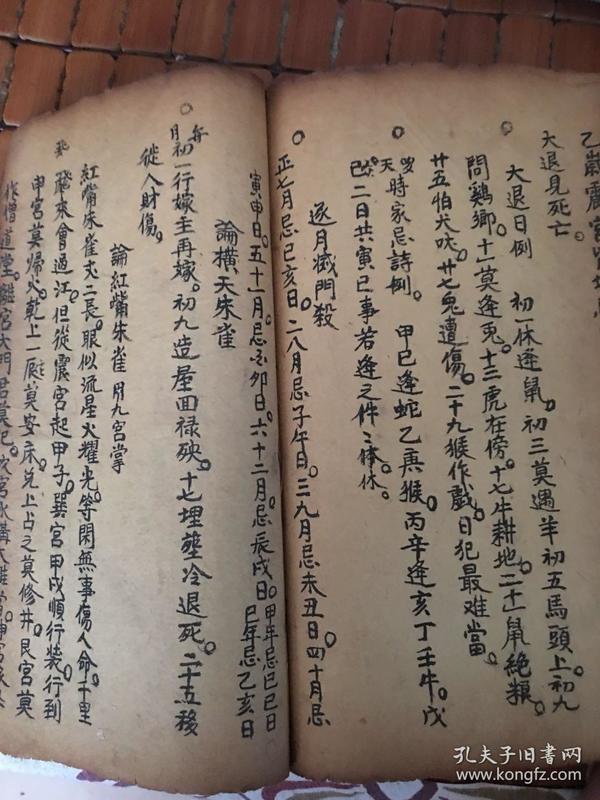 乙歲震宮
大退見死亡。
大退日例　初一休逢鼠。初三莫遇羊初五馬頭上。初九
問鷄鄉。十一莫逢兎。十三虎在傍。十七牛耕地。二十一鼠絶粮。
廿五怕犬吠。廿七兎遭傷。二十九猴作戲。日犯最难當。
時家忌詩例。　甲巳逢蛇乙庚猴。丙辛逢亥丁壬牛。戊
二日共寅巳事若逢之件〻休。
逐月滅門殺
正七月忌巳亥日。二八月忌子午日。三九月忌未丑日。四十月忌
寅申日。五十一月。忌卯日。六十二月。忌辰戌日。甲年忌巳巳日
巳年忌乙亥日
論橫天朱雀
每月初一行嫁主再嫁。初九造屋回禄殃。十七埋塟冷退死。二十五移
徙人財傷。
論紅嘴朱雀　用九宮掌
紅嘴朱雀丈二長。眼似流星火耀光。等閑無事傷人命。千里
飛來會過江。但從震宮起甲子。巽宮甲戌順行裝。行到
中宮莫歸火。乾上二莫安床。兌上占之莫修井。艮宮莫
作僧道堂。離宮大門君莫犯。
孔夫子旧书网
www.kongfz.com